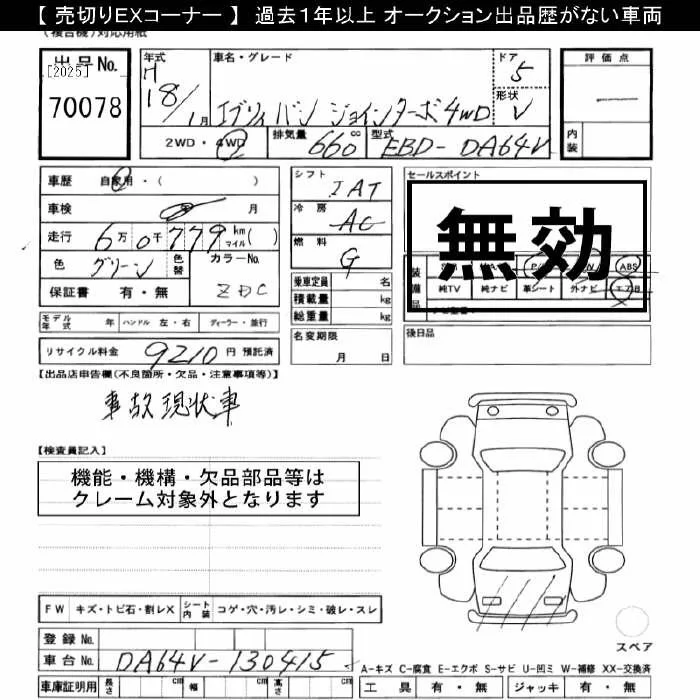 【 売切りEXコーナー 】 過去１年以上 オークション出品歴がない車両
(複合機)対応用紙
出品No.
[2025]
70078
年式
H
18/1月
車名・グレード
エブリィ バン ジョインターボ 4WD
ドア
5
形状
V
2WD・4WD
排気量
660
型式
EBD-DA64V
評価点
―
内装
車歴 自家用・( )
車検 年 月
走行 6万0千779 km マイル( )
色 グリーン 色替
カラーNo.
ZDC
保証書 有・無
シフト
IAT
冷房
AC
燃料
G
乗車定員 名
積載量 kg
総重量 kg
名変期限
月 日
セールスポイント
無効
装備品
ABS
純TV 純ナビ 革シート 外ナビ エアB
後日品
モデル年式 年 ハンドル 左・右 ディーラー・並行
リサイクル料金 9210 円 預託済
【出品店申告欄(不良箇所・欠品・注意事項等)】
事故現状車
【検査員記入】
機能・機構・欠品部品等は
クレーム対象外となります
FW キズ・トビ石・割レX シート内装 コゲ・穴・汚レ・シミ・破レ・スレ
登録No.
車台No. DA64V-130415
車庫証明用 長さ cm 幅 cm 高さ cm
スペア
A-キズ C-腐食 E-エクボ S-サビ U-凹ミ W-補修 XX-交換済
工具 有・無 ジャッキ 有・無